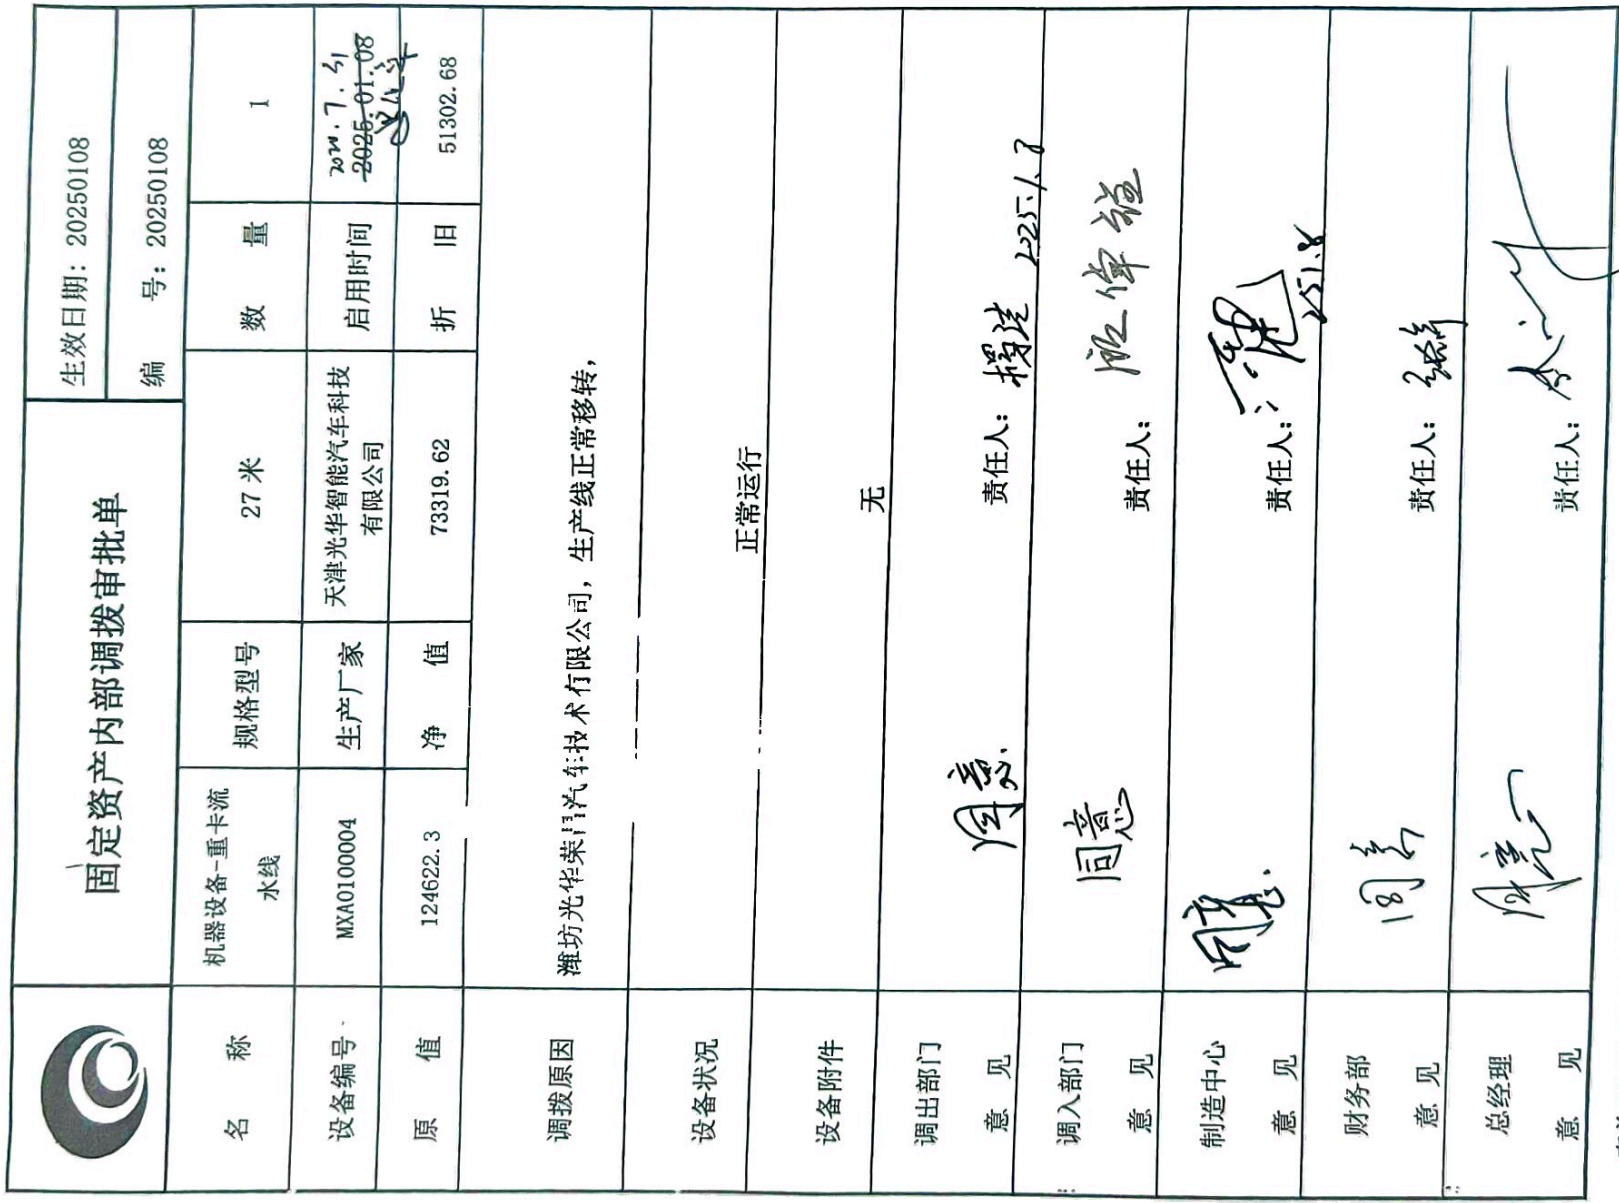 固定资产内部调拨审批单
生效日期：20250108
编 号：20250108
名 称
机器设备-重卡流
水线
规格型号
27 米
数 量
1
设备编号
MXA0100004
生产厂家
天津光华智能汽车科技
有限公司
启用时间
2025.01.08
原 值
124622.3
净 值
73319.62
折 旧
51302.68
调拨原因
潍坊光华荣昌汽车技术有限公司，生产线正常移转，
设备状况
正常运行
设备附件
无
调出部门
意 见
同意.
责任人：
2025.1.8
调入部门
意 见
同意
责任人：
制造中心
意 见
同意.
责任人：
25.1.8
财务部
意 见
同意
责任人：
总经理
意 见
同意
责任人：